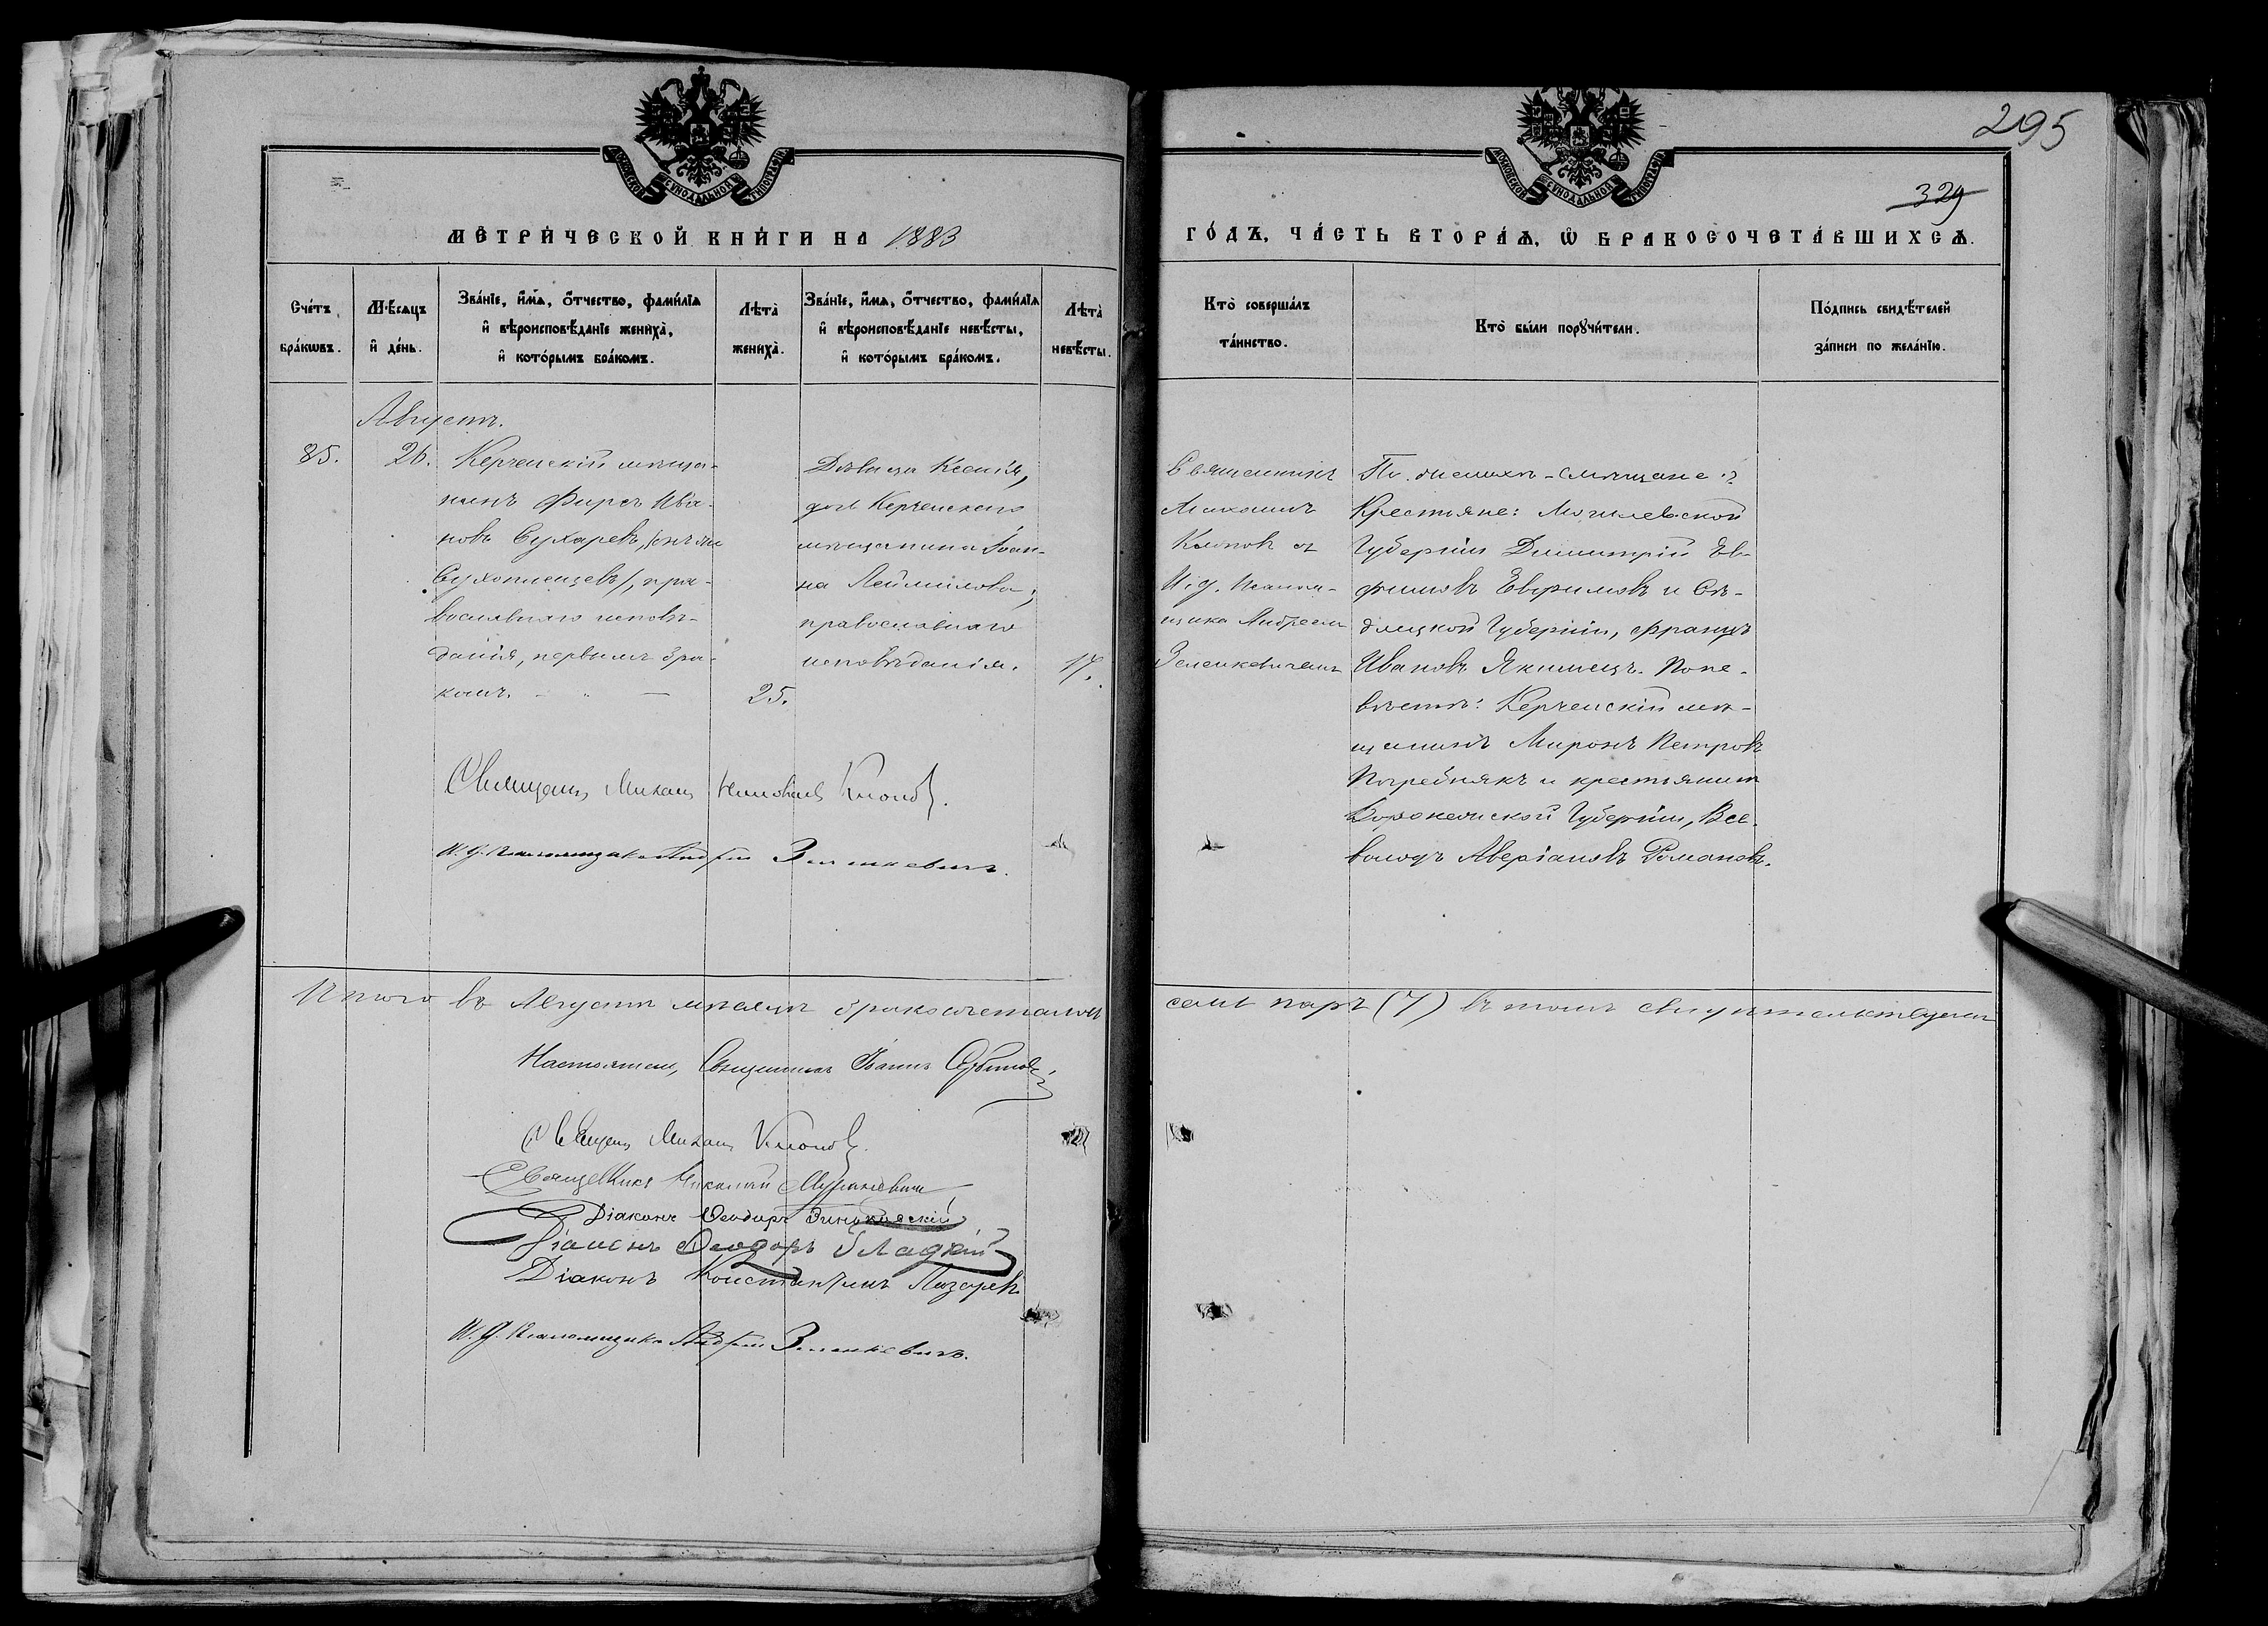 295
329
МЕТРИЧЕСКОЙ КНИГИ НА 1883
ГОДЪ, ЧАСТЬ ВТОРАЯ, Ѡ БРАКОСОЧЕТАВШИХСЯ.
Счетъ браковъ.
Мѣсяцъ и день.
Званіе, имя, отчество, фамилія и вѣроисповѣданіе жениха, и которымъ бракомъ.
Лѣта жениха.
Званіе, имя, отчество, фамилія и вѣроисповѣданіе невѣсты, и которымъ бракомъ.
Лѣта невѣсты.
Кто совершалъ таинство.
Кто были поручители.
Подпись свидѣтелей записи по желанію.
Августъ.
85.
26.
Керченскій мѣща-
нинъ Фирсъ Ива-
новъ Сухаревъ, /онъ же
Сухоплещевъ/, пра-
вославнаго исповѣ-
данія, первымъ бра-
комъ.
25.
Дѣвица Ксенія,
дочь Керченскаго
мѣщанина Іоан-
на
православнаго
исповѣданія.
17.
Священникъ
Михаилъ
Клоповъ съ
И. д. псалом-
щика Андреемъ
Зеленкевичемъ
По женихѣ
Крестьяне: Могилевской
Губерніи Димитрій Ев-
фимовъ Ефримовъ и Сѣ-
длецкой Губерніи, Францъ
Ивановъ Якимецъ. По не-
вѣстѣ: Керченскій мѣ-
щанинъ Миронъ Петровъ
Погребнякъ и крестьянинъ
Воронежской Губерніи, Все-
володъ Аверіановъ Романовъ.
Священ. Михаилъ Клоповъ.
И. д. псаломщика Андрей Зеленкевичъ.
Итого въ Августѣ мѣсяцѣ бракосочеталось
семь паръ (7) въ томъ свидѣтельствуемъ
Настоятель, Священникъ Іоаннъ Сербиновъ
Священ. Михаилъ Клоповъ.
Священникъ Николай
Діаконъ Ѳеодоръ
Діаконъ Ѳеодоръ Гладкій
Діаконъ Константинъ Лазаревъ
И. д. псаломщика Андрей Зеленкевичъ.